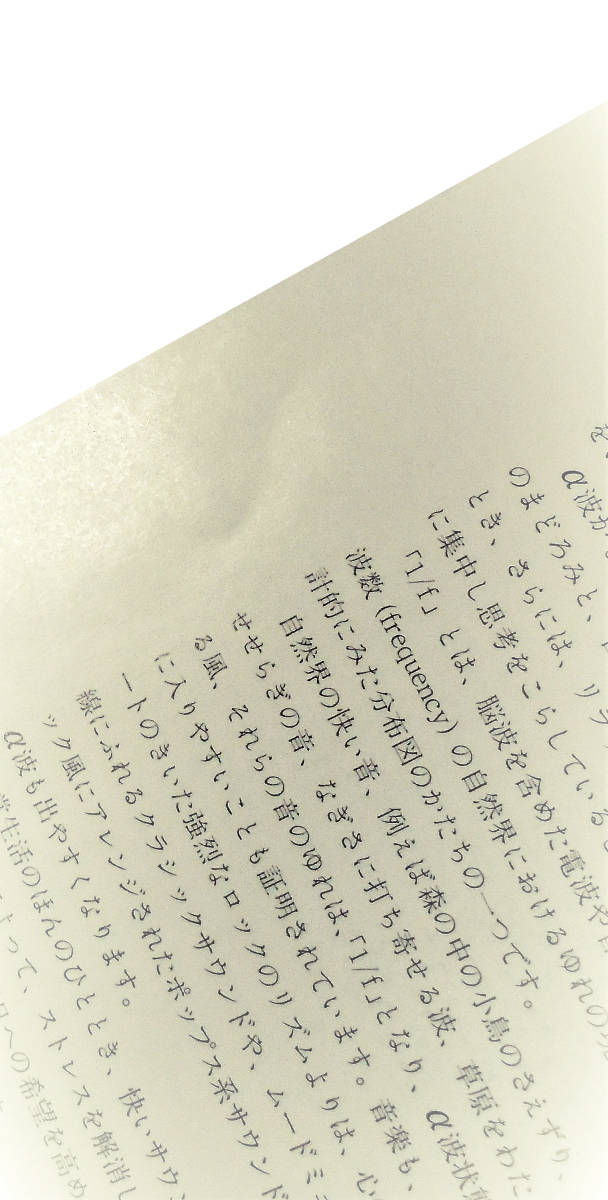 を
α波が
のまどろみと、
とき、さらには、リラ
に集中し思考をこらしている
「1/f」とは、脳波を含めた電波や
波数 (frequency) の自然界におけるゆれの
計的にみた分布図のかたちの一つです。
自然界の快い音、例えば森の中の小鳥のさえずり、
せせらぎの音、なぎさに打ち寄せる波、草原をわた
る風、それらの音のゆれは、「1/f」となり、α波状
に入りやすいことも証明されています。音楽も、
ートのきいた強烈なロックのリズムよりは、心
線にふれるクラシックサウンドや、ムードミ
ック風にアレンジされたポップス系サウンド
α波も出やすくなります。
常生活のほんのひととき、快いサウン
よって、ストレスを解消し
日への希望を高め